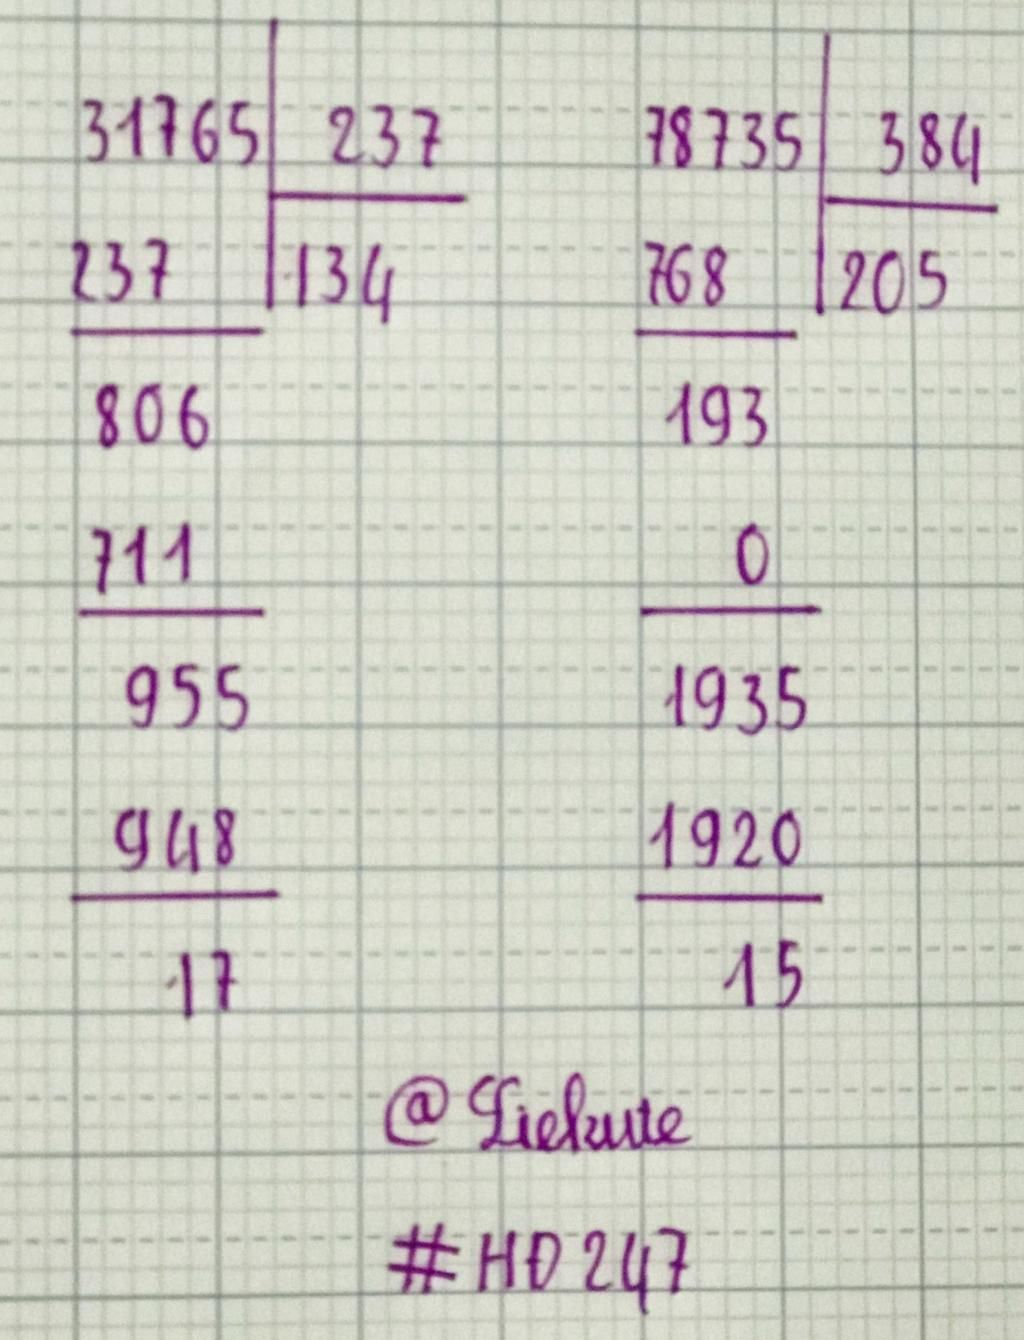 31765 237
237 134
806
711
955
948
17
78735 384
768 205
193
0
1935
1920
15
@Liekute
#HĐ247